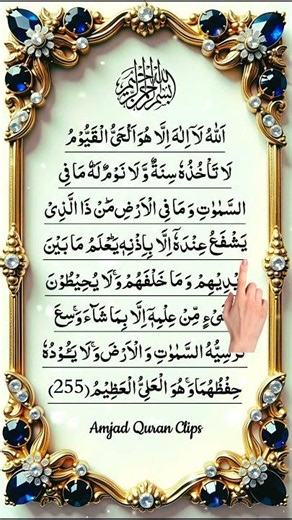 بسم الله الرحمن الرحيم
اَللّٰهُ لَآ اِلٰهَ اِلَّا هُوَ اَلْحَیُّ الْقَیُّوْمُ
لَا تَاْخُذُهٗ سِنَةٌ وَّلَا نَوْمٌ لَهٗ مَا فِی
السَّمٰوٰتِ وَمَا فِی الْاَرْضِ مَنْ ذَا الَّذِیْ
یَشْفَعُ عِنْدَهٗٓ اِلَّا بِاِذْنِهٖ یَعْلَمُ مَا بَیْنَ
یْدِیْهِمْ وَمَا خَلْفَهُمْ وَلَا یُحِیْطُوْنَ
یْءٍ مِّنْ عِلْمِهٖٓ اِلَّا بِمَا شَآءَ وَسِعَ
رْسِیُّهُ السَّمٰوٰتِ وَالْاَرْضَ وَلَا یَـُٔوْدُهٗ
حِفْظُهُمَا وَهُوَ الْعَلِیُّ الْعَظِیْمُ (255)
Amjad Quran Clips